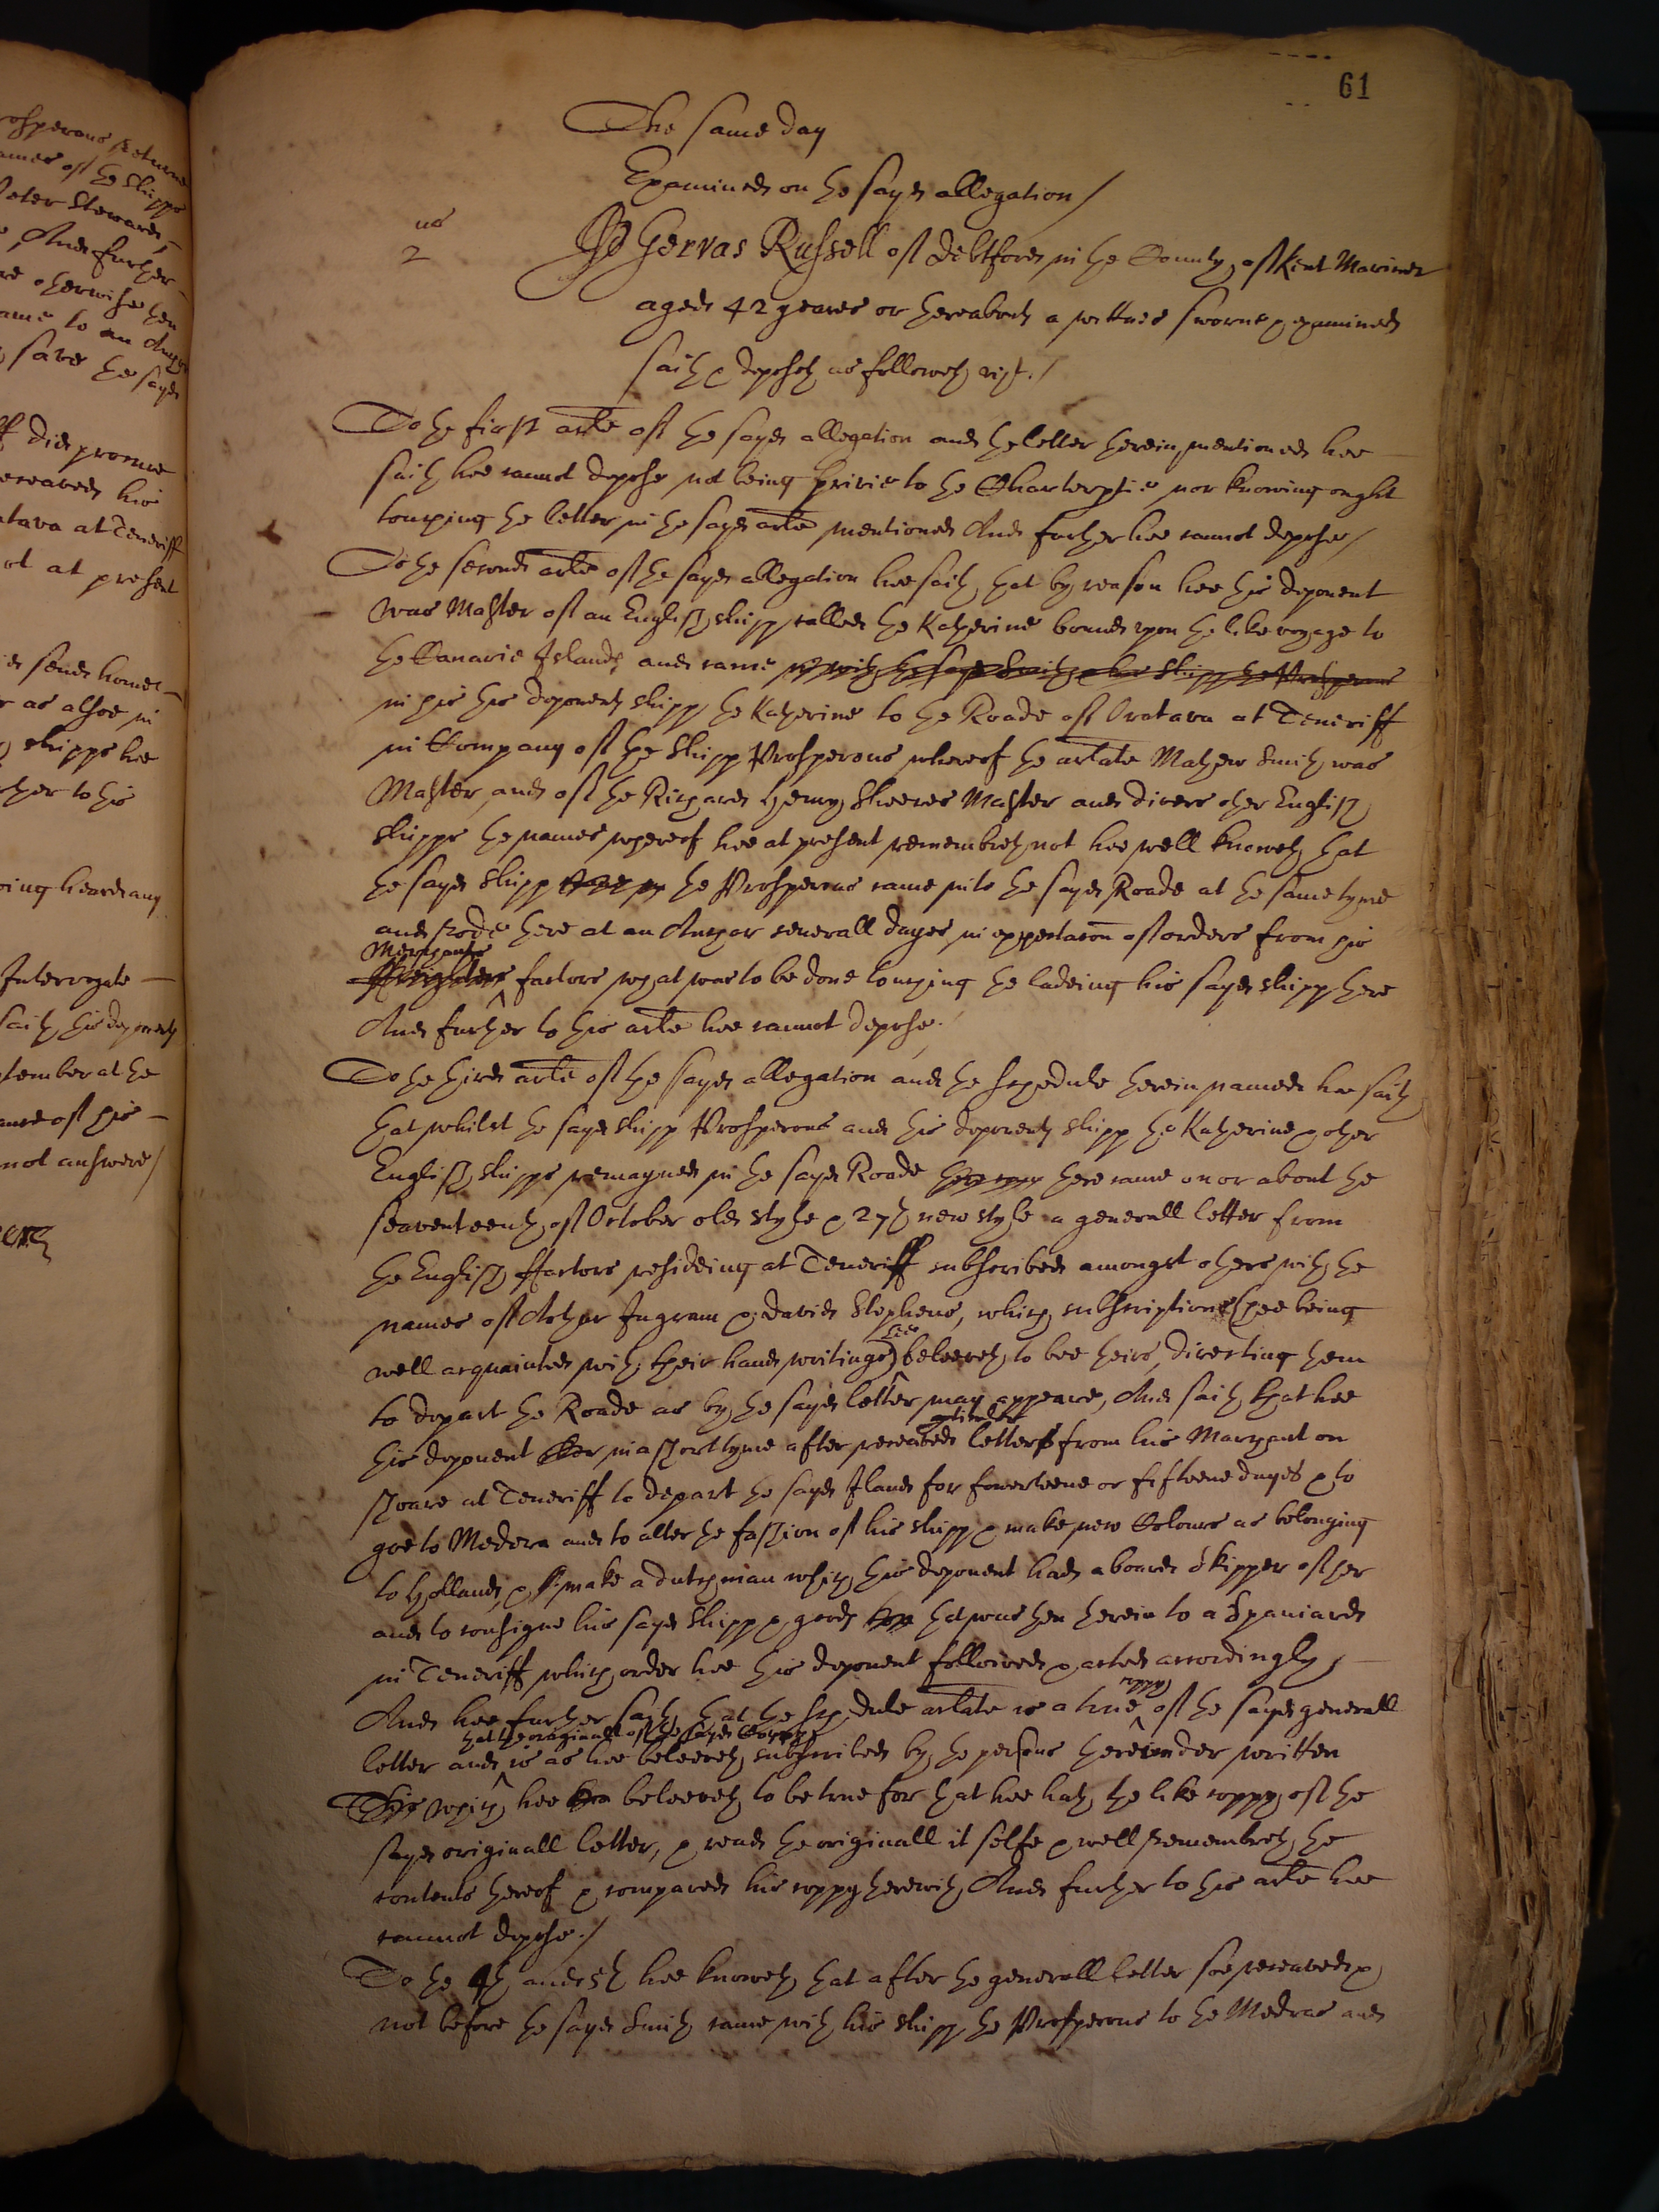 osperous returne
ames of the shipps
Peter Stewards
, And further
re otherwise then
ame to an Anch
, save the sayd
ff did promise
receaved his
atava at Teneriff
ot at present
sends home
r as alsoe in
shipps hee
rther to this
ving heard any
Interrogate
saith this deponent
ptember at the
ause of his
not answere/
61
The same day
Examined on the sayd allegation/
us
2
Gervas Russell of Debtford in the County of Kent Mariner
aged 42 yeares or thereabouts a wittnes sworne & examined
saith & deposeth as followeth vizt./
To the first arle of the sayd allegation and the letter therein mentioned hee
saith hee cannot depose not being privie to the Charterptie nor knowing ought
touching the letter in the sayd arle mentioned And further hee cannot depose/
To the second arle of the sayd allegation hee saith that by reason hee this deponent
was Master of an English shipp called the Katherine bound upon the like voyage to
the Canarie Islands and came with the sayd Smith & his shipp the Prosperous
in his this deponents shipp the Katherine to the Roade of Oratava at Teneriff
in Company of the shipp Prosperous whereof the arlate Mathew Smith was
Master, and of the Richard Henry Skeeves Master and divers other English
shipps the names whereof hee at present remembreth not hee well knoweth that
the sayd shipp the Prosperous came into the sayd Roade at the same tyme
and rode there at an Anchor severall dayes in expectacon of orders from his
Merchants
ffreighters factors what was to be done touching the ladeing his sayd shipp there
And further to this arle hee cannot depose./
To the third arle of the sayd allegation and the schedule therein named hee saith
that whilst the sayd shipp Prosperous and this deponents shipp the Katherine & other
English shipps remayned in the sayd Roade there came on or about the
seaventeenth of October old style & 27th new style a generall letter from
the English ffactors resideing at Teneriff subscribed amongst others with the
names of Arthur Ingram & David Stephens, which subscriptions (hee being
well acquainted with their hand writings) hee beleeveth to bee theirs, directing them
to depart the Roade as by the sayd letter may appeare, And saith that hee
this deponent in a short tyme after receaved particular letters from his Marchant on
shoare at Teneriff to depart the sayd Iland for fowerteene or fifteene dayes & to
goe to Medera and to alter the fashion of his shipp & make new Colours as belonging
to Holland, & make a dutchman which this deponent had aboard skipper of her
and to consigne his sayd shipp & goods that was then therein to a Spaniard
in Teneriff which order hee this deponent followed & acted accordingly,
And hee further saith that the schedule arlate is a true coppy of the sayd generall
that the originall of the sayd Coppy
letter and is as hee beleeveth subscribed by the persons thereunder written
This which hee beleeveth to be true for that hee hath the like coppy of the
sayd originall letter, & read the originall it selfe & well remembreth the
contents thereof & compared his coppy therewith, And further to this arle hee
cannot depose./
To the 4th and 5th hee knoweth that after the generall letter soe receaved &
not before the sayd Smith came with his shipp the Prosperous to the Medras and